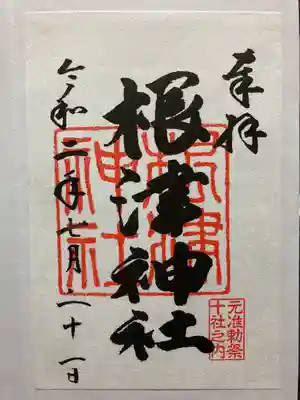 奉拝
根津神社
根津
神社
元准勅祭
十社之内
令和二年七月二十一日